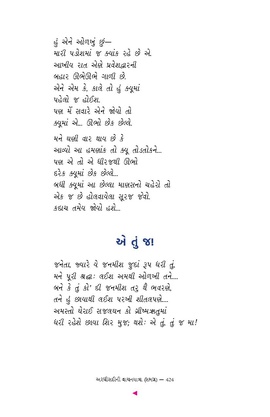 હું એને ઓળખું છું—
મારી પડોશમાં જ ક્યાંક રહે છે એ.
આખીય રાત એણે પ્રવેશદ્વારની
બહાર ઊભેઊભે ગાળી છે.
એને એમ કે, કાલે તો હું ક્યૂમાં
પહેલો જ હોઈશ.
પણ મેં સવારે એને જોયો તો
ક્યૂમાં એ... ઊભો છેક છેલ્લે.
મને ઘણી વાર થાય છે કે
આવ્યો આ હમણાંક તો ક્યૂ તોડતોકને...
પણ એ તો એ ધીરજથી ઊભો
દરેક ક્યૂમાં છેક છેલ્લે...
બધી ક્યૂમાં આ છેલ્લા માણસનો ચહેરો તો
એક જ છે હોલવાયેલા સૂરજ જેવો.
કદાચ તમેય જોયો હશે...
એ તું જ!
જનેતા, જ્યારે વે જનમીશ જુદાં રૂપ ધરી તું,
મને પૂરી શ્રદ્ધા: લઈશ અમથી ઓળખી તને...
બને કે તું કો' દી જનમીશ તરુ થૈ ભવરણે,
તને હું છાયાથી લઈશ પરખી શીતલપણે...
અમસ્તો વેરાઈ સજલઘન કો ગ્રીષ્મઋતુમાં
ધરી રહેશે છાયા શિર મુજ; થશે: એ તું, તું જ મા!
— 424